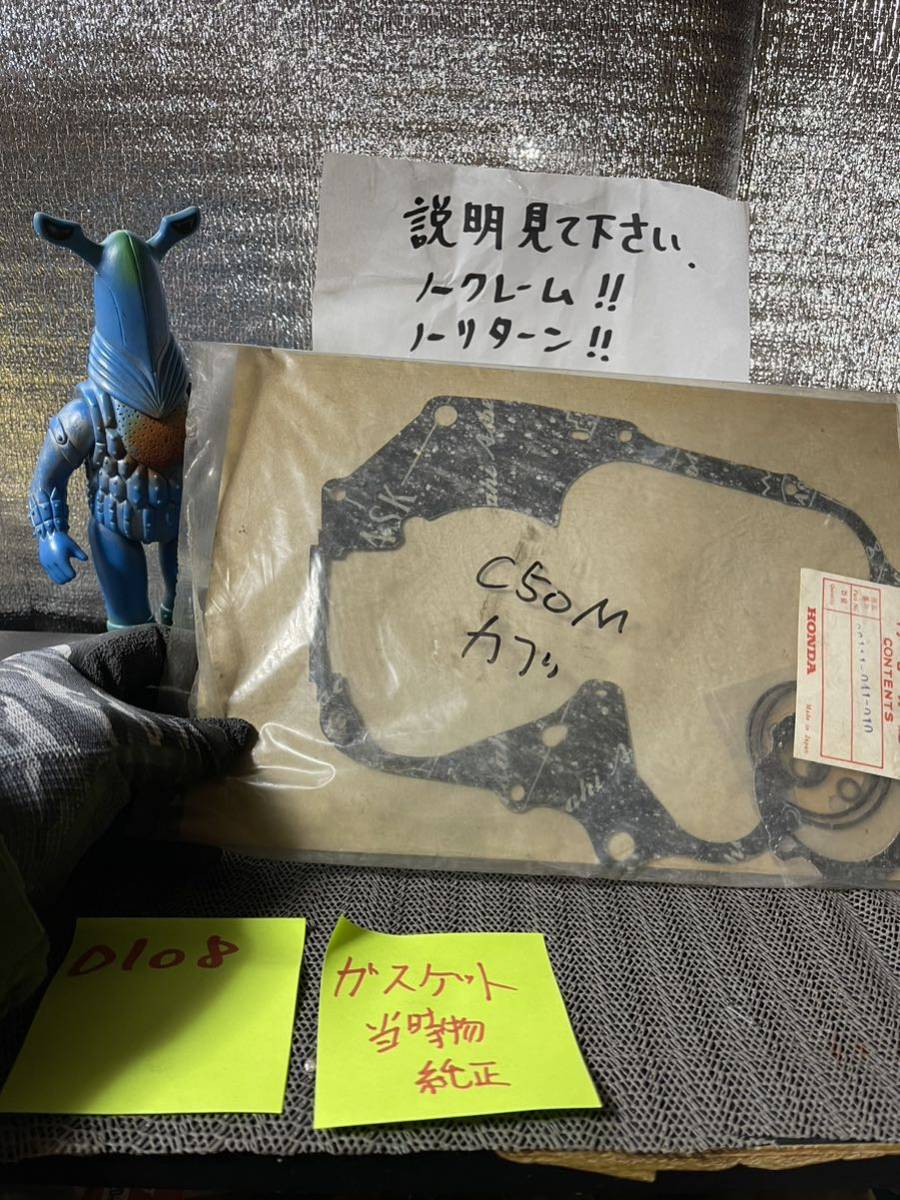 説明見て下さい.
ノークレーム!!
ノーリターン!!
ASK
C50M
カブリ
CONTENTS
Part No.
Quantity
HONDA
Made in Japan
D108
ガスケット
当時物
純正